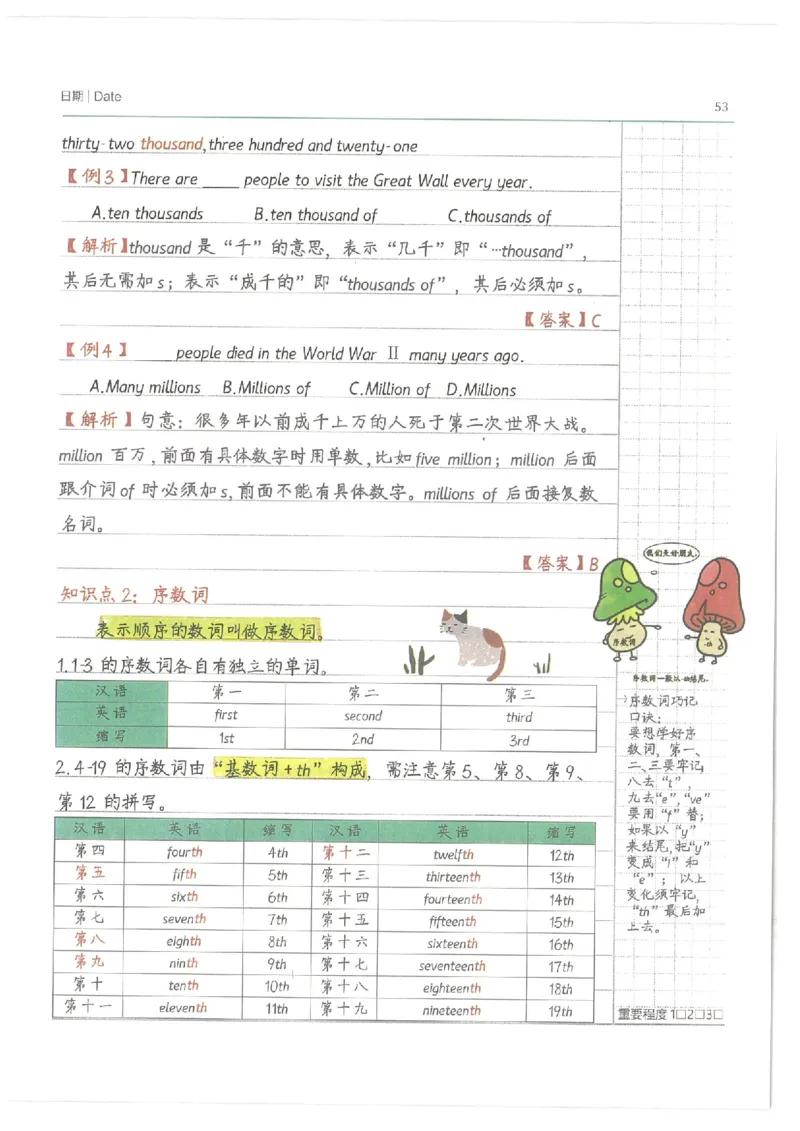 日期 | Date
53
thirty-two thousand, three hundred and twenty-one
【例3】There are ____ people to visit the Great Wall every year.
A.ten thousands B.ten thousand of C.thousands of
【解析】thousand 是“千”的意思，表示“几千”即“…thousand”，
其后无需加s；表示“成千的”即“thousands of”，其后必须加s。
【答案】C
【例4】____people died in the World War Ⅱ many years ago.
A.Many millions B.Millions of C.Million of D.Millions
【解析】句意：很多年以前成千上万的人死于第二次世界大战。
million 百万，前面有具体数字时用单数，比如five million；million 后面
跟介词of 时必须加s，前面不能有具体数字。millions of 后面接复数
名词。
【答案】B
知识点2：序数词
表示顺序的数词叫做序数词。
1.1-3 的序数词各自有独立的单词。
汉语 第一 第二 第三
英语 first second third
缩写 1st 2nd 3rd
2.4-19 的序数词由“基数词+th”构成，需注意第5、第8、第9、
第12 的拼写。
汉语 英语 缩写 汉语 英语 缩写
第四 fourth 4th 第十二 twelfth 12th
第五 fifth 5th 第十三 thirteenth 13th
第六 sixth 6th 第十四 fourteenth 14th
第七 seventh 7th 第十五 fifteenth 15th
第八 eighth 8th 第十六 sixteenth 16th
第九 ninth 9th 第十七 seventeenth 17th
第十 tenth 10th 第十八 eighteenth 18th
第十一 eleventh 11th 第十九 nineteenth 19th
我们是好朋友。
序数词
th
序数词一般以-th结尾。
→序数词巧记
口诀：
要想学好序
数词，第一、
二、三要牢记，
八去“t”，
九去“e”，“ve”
要用“f”替；
如果以“y”
来结尾，把“y”
变成“i”和
“e”；以上
变化须牢记，
“th”最后加
上去。
重要程度 1□2□3□